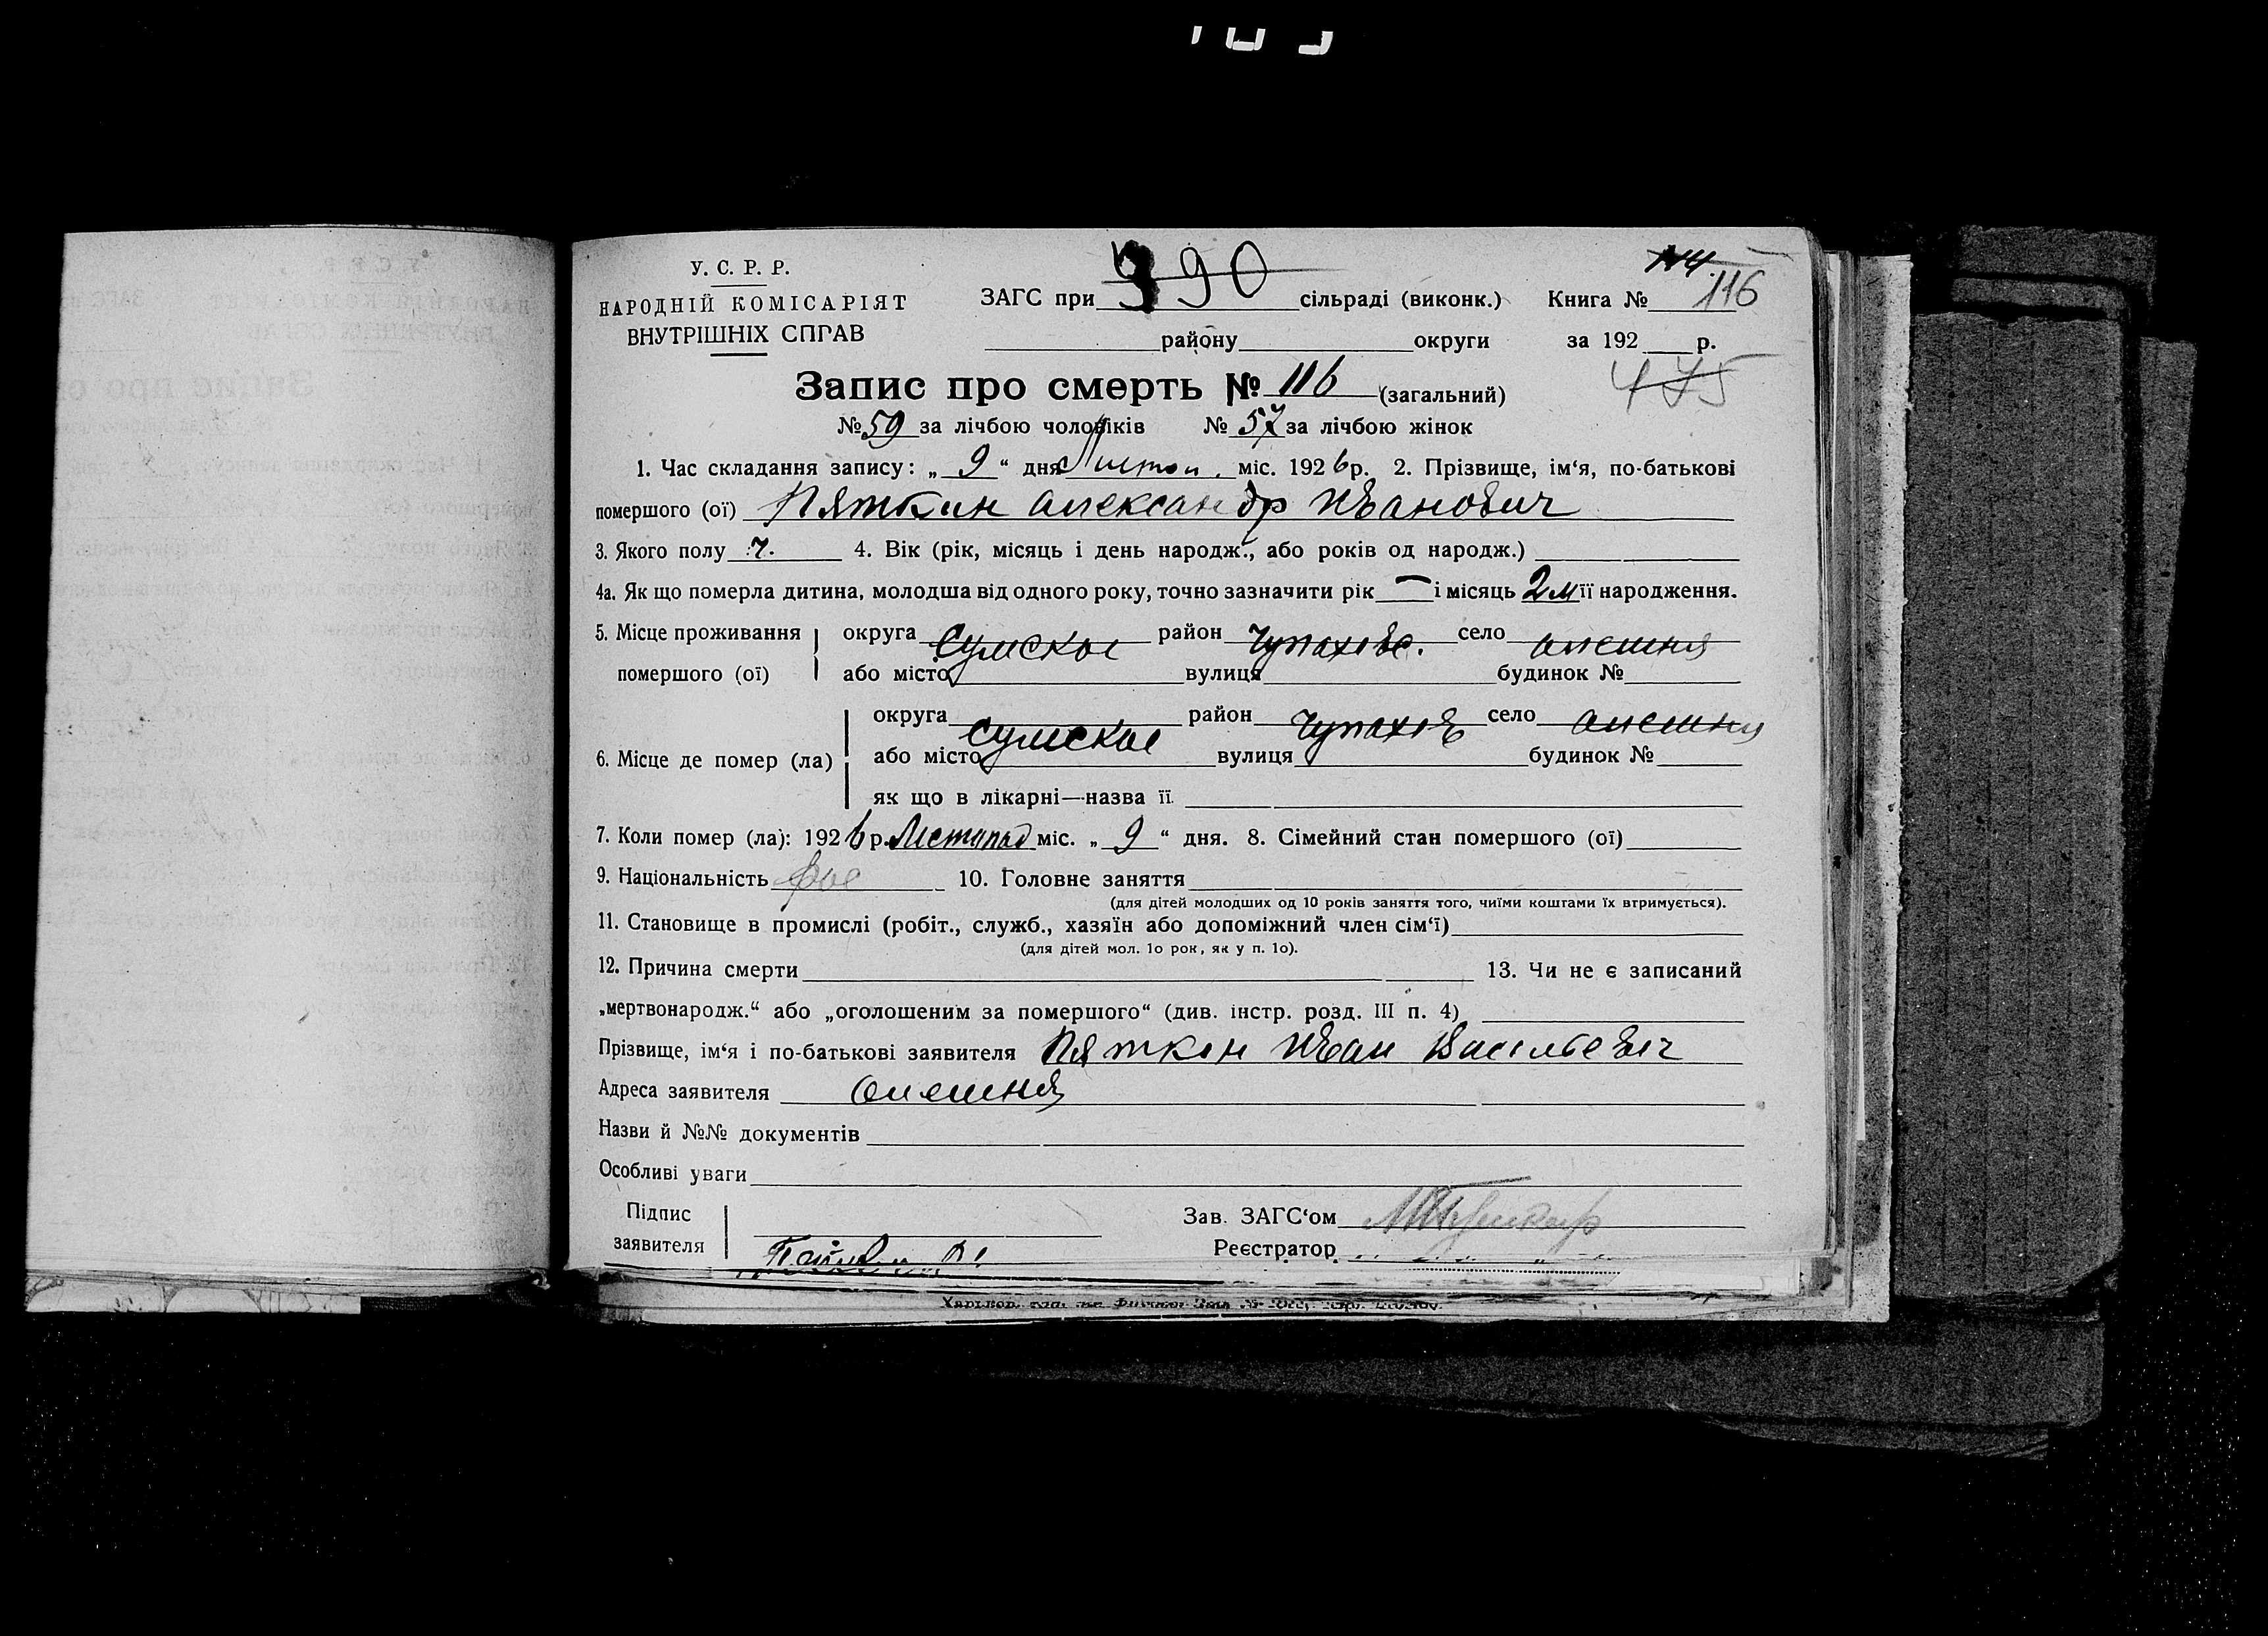 У. С. Р. Р.
НАРОДНІЙ КОМІСАРІЯТ
ВНУТРІШНІХ СПРАВ
ЗАГС при 390 сільраді (виконк.) Книга № 116
району округи за 192 р.
Запис про смерть № 116 (загальний)
475
№ 59 за лічбою чоловіків № 57 за лічбою жінок
1. Час складання запису: „ 9 “ дня Листоп. міс. 1926 р. 2. Прізвище, ім‘я, по-батькові
помершого (ої) Пяткин Александр Иванович
3. Якого полу ч. 4. Вік (рік, місяць і день народж., або років од народж.)
4а. Як що померла дитина, молодша від одного року, точно зазначити рік — і місяць 2 м її народження.
5. Місце проживання помершого (ої) округа Сумское район Чупахівс. село Олешня
або місто вулиця будинок №
6. Місце де помер (ла) округа Сумское район Чупахів село Олешня
або місто вулиця будинок №
як що в лікарні—назва її
7. Коли помер (ла): 1926 р. Листопад міс. „ 9 “ дня. 8. Сімейний стан помершого (ої)
9. Національність рос 10. Головне заняття
(для дітей молодших од 10 років заняття того, чиїми коштами їх втримується).
11. Становище в промислі (робіт., служб., хазяїн або допоміжний член сім‘ї)
(для дітей мол. 1о рок, як у п. 1о).
12. Причина смерти 13. Чи не є записаний
„мертвонародж.“ або „оголошеним за помершого“ (див. інстр. розд. III п. 4)
Прізвище, ім‘я і по-батькові заявителя Пяткін Иван Васільевіч
Адреса заявителя Олешня
Назви й №№ документів
Особливі уваги
Підпис заявителя
Зав. ЗАГС‘ом
Реєстратор